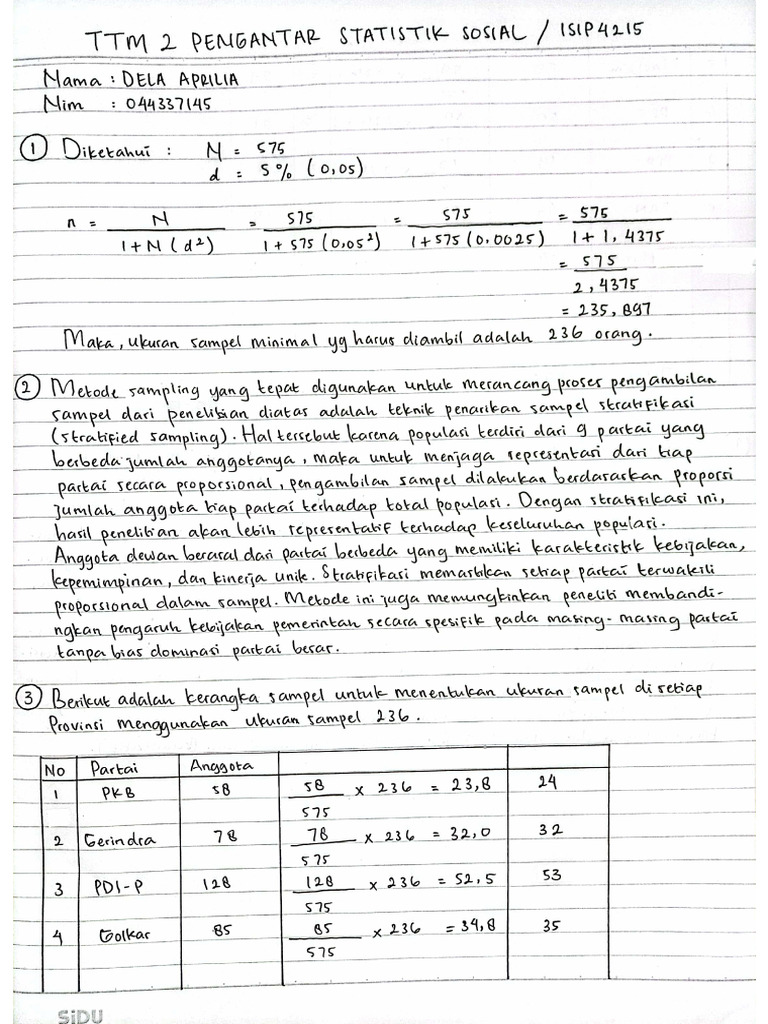 TTM 2 PENGANTAR STATISTIK SOSIAL / ISIP4215
Nama : DELA APRILIA
Nim : 044337145
1 Diketahui : N = 575
d = 5% (0,05)
n = N / 1+N(d²) = 575 / 1+575(0,05²) = 575 / 1+575(0,0025) = 575 / 1+1,4375
= 575 / 2,4375
= 235,897
Maka, ukuran sampel minimal yg harus diambil adalah 236 orang.
2 Metode sampling yang tepat digunakan untuk merancang proses pengambilan
sampel dari penelitian diatas adalah teknik penarikan sampel stratifikasi
(stratified sampling). Hal tersebut karena populasi terdiri dari 9 partai yang
berbeda jumlah anggotanya, maka untuk menjaga representasi dari tiap
partai secara proporsional, pengambilan sampel dilakukan berdasarkan proporsi
jumlah anggota tiap partai terhadap total populasi. Dengan stratifikasi ini,
hasil penelitian akan lebih representatif terhadap keseluruhan populasi.
Anggota dewan berasal dari partai berbeda yang memiliki karakteristik kebijakan,
kepemimpinan, dan kinerja unik. Stratifikasi memastikan setiap partai terwakili
proporsional dalam sampel. Metode ini juga memungkinkan peneliti membandi-
ngkan pengaruh kebijakan pemerintah secara spesifik pada masing-masing partai
tanpa bias dominasi partai besar.
3 Berikut adalah kerangka sampel untuk menentukan ukuran sampel di setiap
Provinsi menggunakan ukuran sampel 236.
No Partai Anggota
1 PKB 58 58/575 x 236 = 23,8 24
2 Gerindra 78 78/575 x 236 = 32,0 32
3 PDI-P 128 128/575 x 236 = 52,5 53
4 Golkar 85 85/575 x 236 = 34,8 35
SiDU